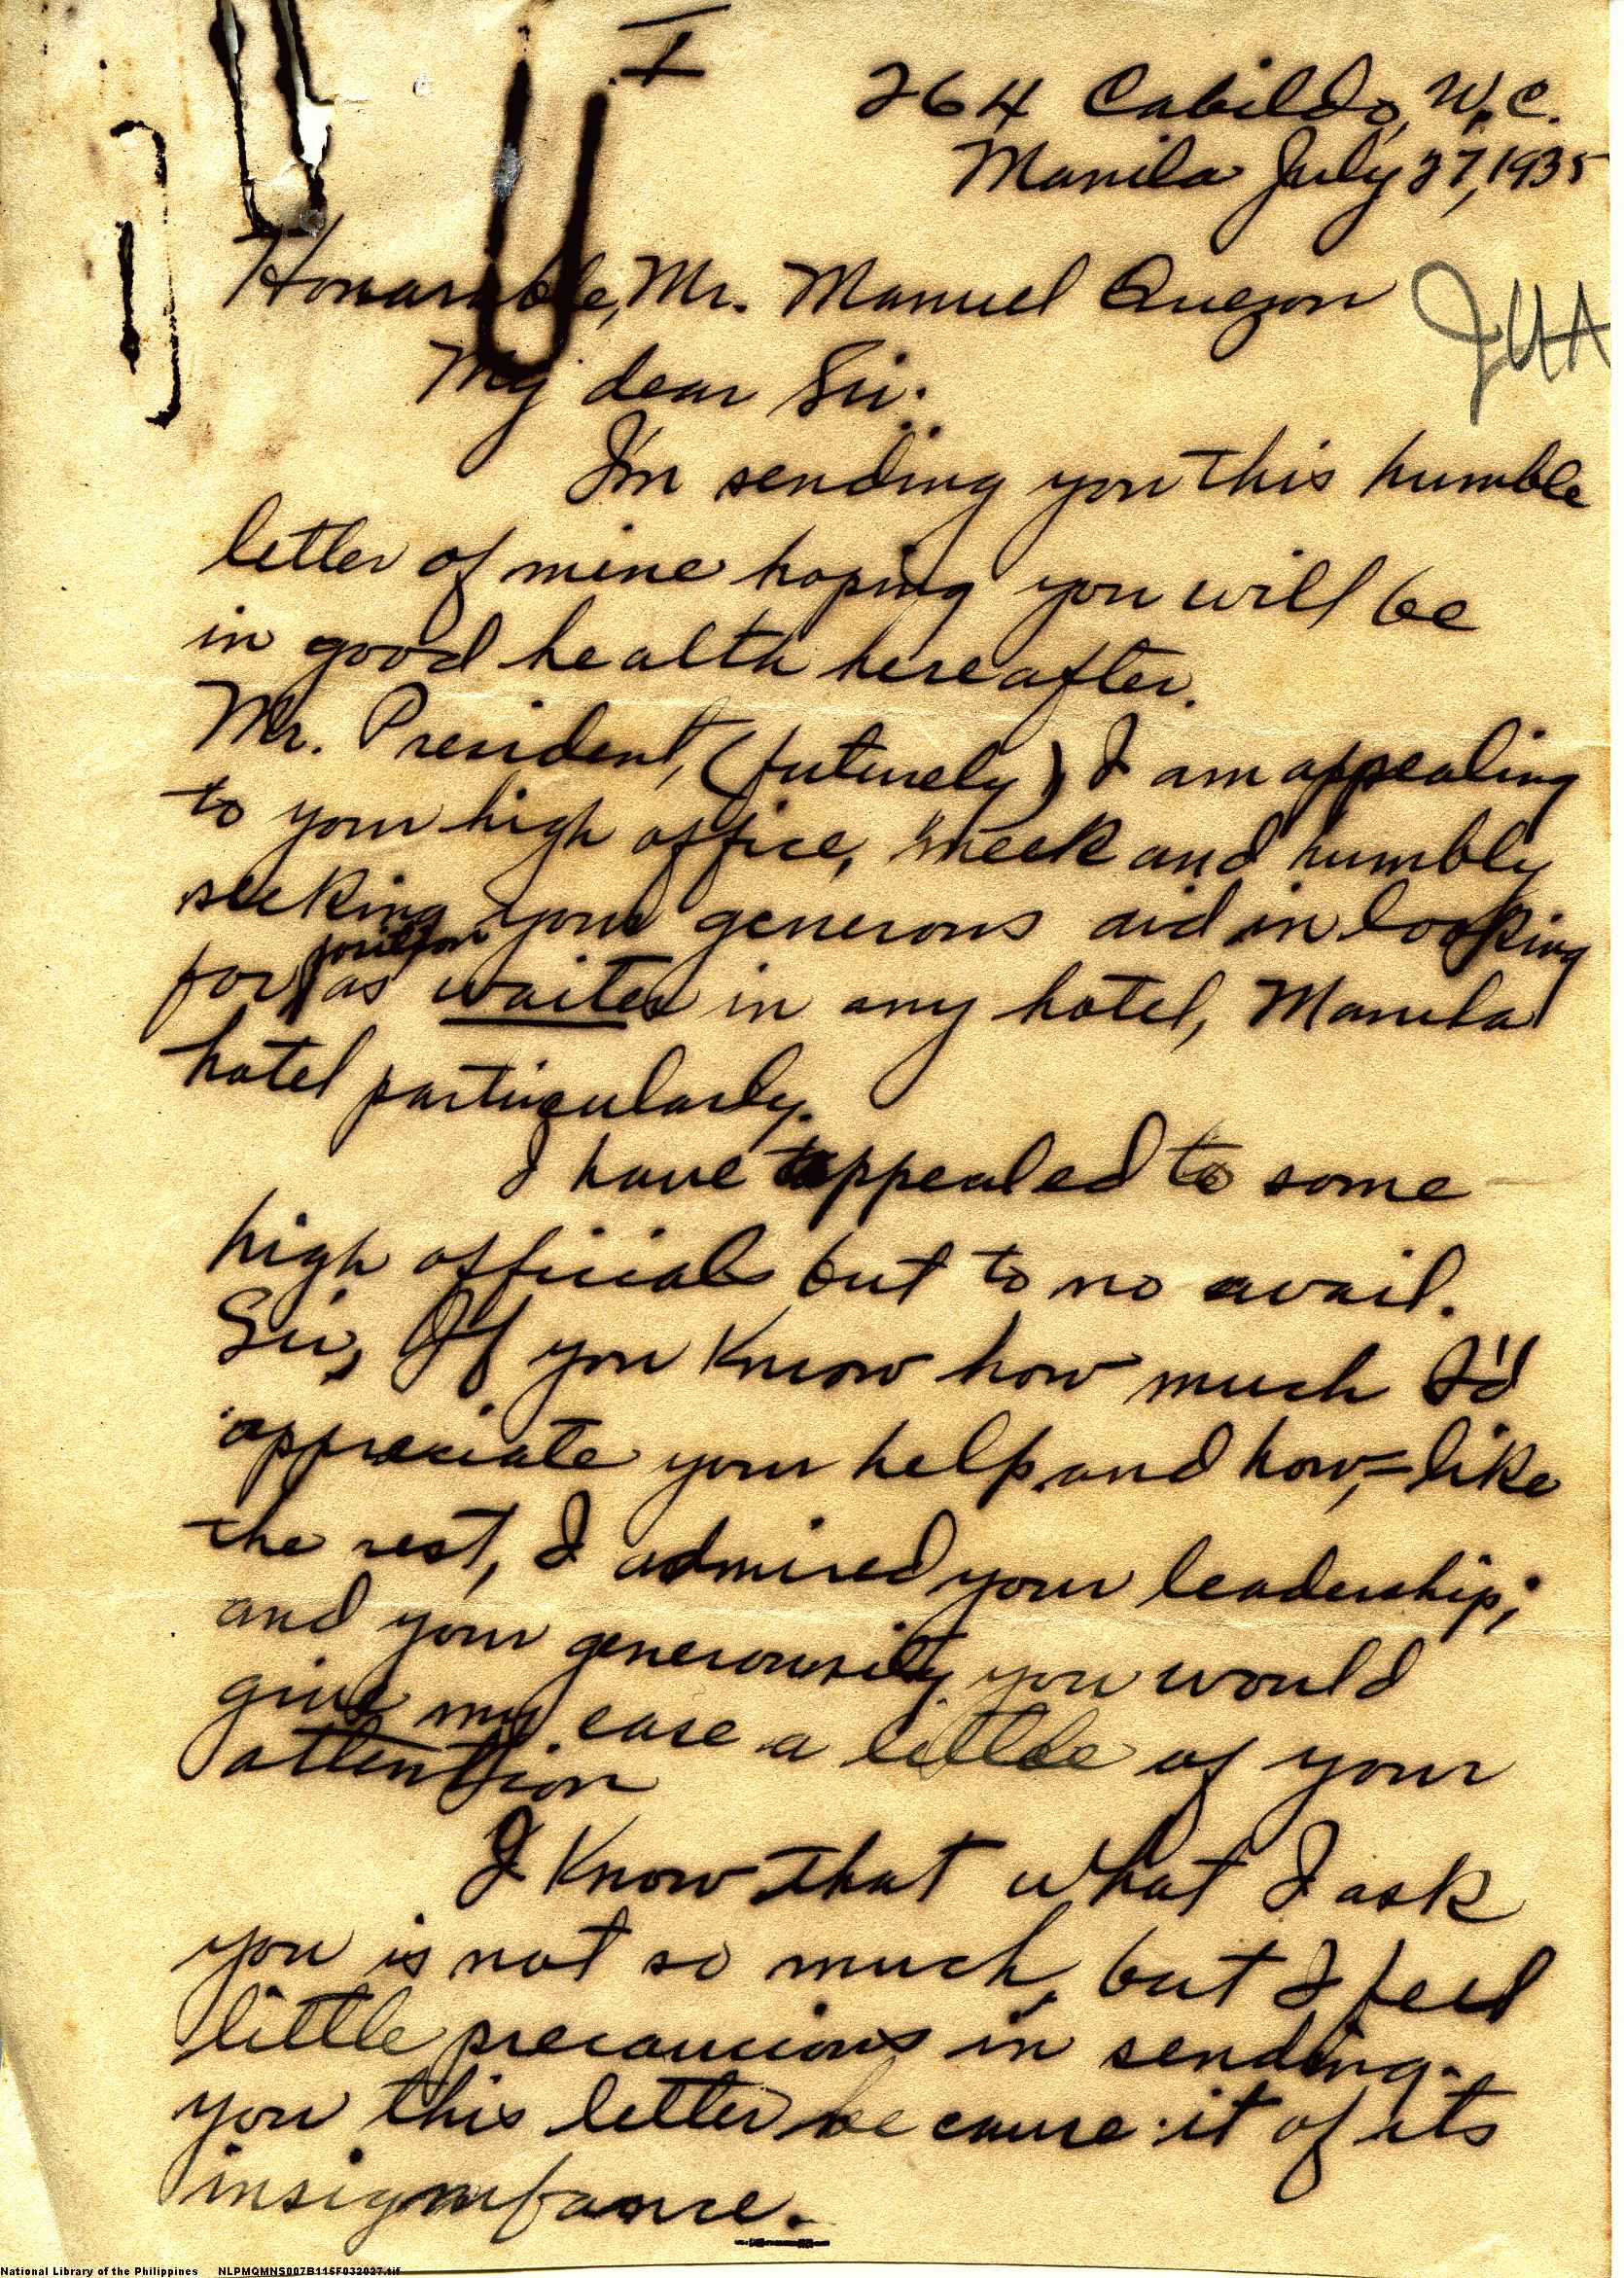 I
264 Cabildo, W.C.
Manila July 27, 1935
Honarable, Mr. Manuel Quezon
JUA
My dear Sir:
I'm sending you this humble
letter of mine hoping you will be
in good health hereafter.
Mr. President, (futurely) I am appealing
to your high office, meek and humbly
seeking your generous aid in looking
position
for as waiter in any hotel, Manila
hotel particularly.
I have appealed to some
high officials but to no avail.
Sir, If you know how much I'd
appreciate your help and how,=like
the rest, I admired your leadership;
and your generousity you would
give my case a little of your
attention
I know that what I ask
you is not so much, but I feel
little precaucious in sending
you this letter because it of its
insignifance.
National Library of the Philippines NLPMQMNS007B115F032027.tif